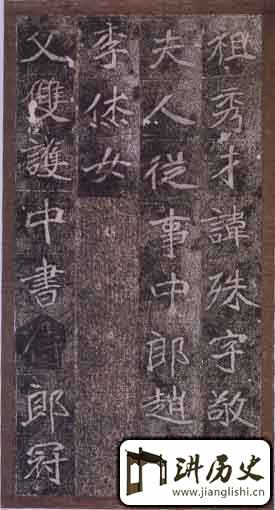 祖秀才諱殊字敬
夫人從事中郎趙
李休女
父雙護中書侍郎冠
讲历史
www.jianglishi.cn